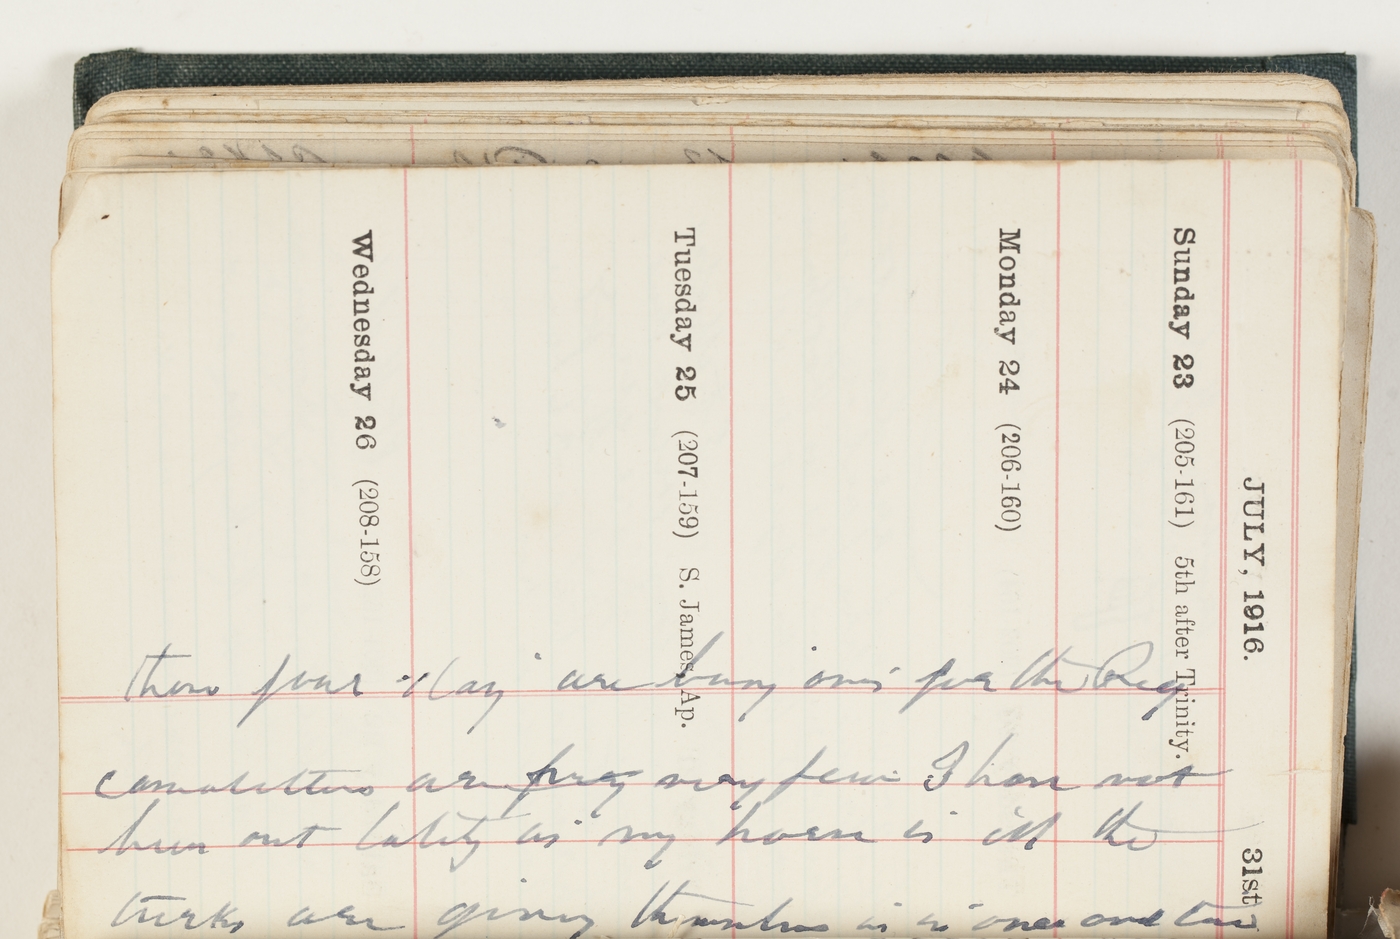 JULY, 1916.
31st
Sunday 23 (205-161) 5th after Trinity.
Monday 24 (206-160)
Tuesday 25 (207-159) S. James, Ap.
Wednesday 26 (208-158)
four day are busy ones for the Reg
casualitties are very few I have not
been out lately as my horse is ill the
turks are giving themselves in in ones and two